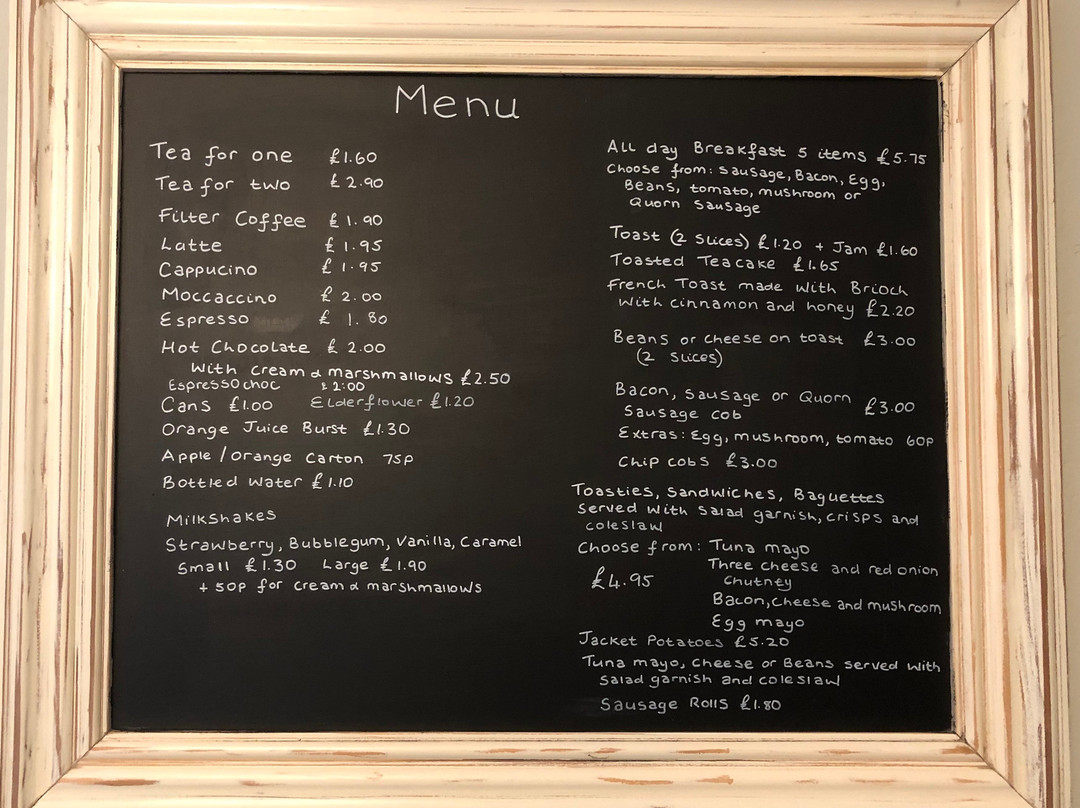 Menu
Tea for one £1.60
Tea for two £2.90
Filter Coffee £1.90
Latte £1.95
Cappucino £1.95
Moccaccino £2.00
Espresso £1.80
Hot Chocolate £2.00
With cream & marshmallows £2.50
Espresso choc £2:00
Cans £1.00 Elderflower £1.20
Orange Juice Burst £1.30
Apple/Orange Carton 75p
Bottled Water £1.10
Milkshakes
Strawberry, Bubblegum, Vanilla, Caramel
Small £1.30 Large £1.90
+ 50p for cream & marshmallows
All day Breakfast 5 items £5.75
Choose from: Sausage, Bacon, Egg,
Beans, tomato, mushroom or
Quorn Sausage
Toast (2 Slices) £1.20 + Jam £1.60
Toasted Teacake £1.65
French Toast made with Brioch
With cinnamon and honey £2.20
Beans or cheese on toast £3.00
(2 Slices)
Bacon, Sausage or Quorn
Sausage cob £3.00
Extras: Egg, mushroom, tomato 60p
Chip cobs £3.00
Toasties, Sandwiches, Baguettes
Served with Salad garnish, crisps and
coleslaw
Choose from: Tuna mayo
Three cheese and red onion
Chutney
£4.95
Bacon, cheese and mushroom
Egg mayo
Jacket Potatoes £5.20
Tuna mayo, Cheese or Beans served with
Salad garnish and coleslaw
Sausage Rolls £1.80